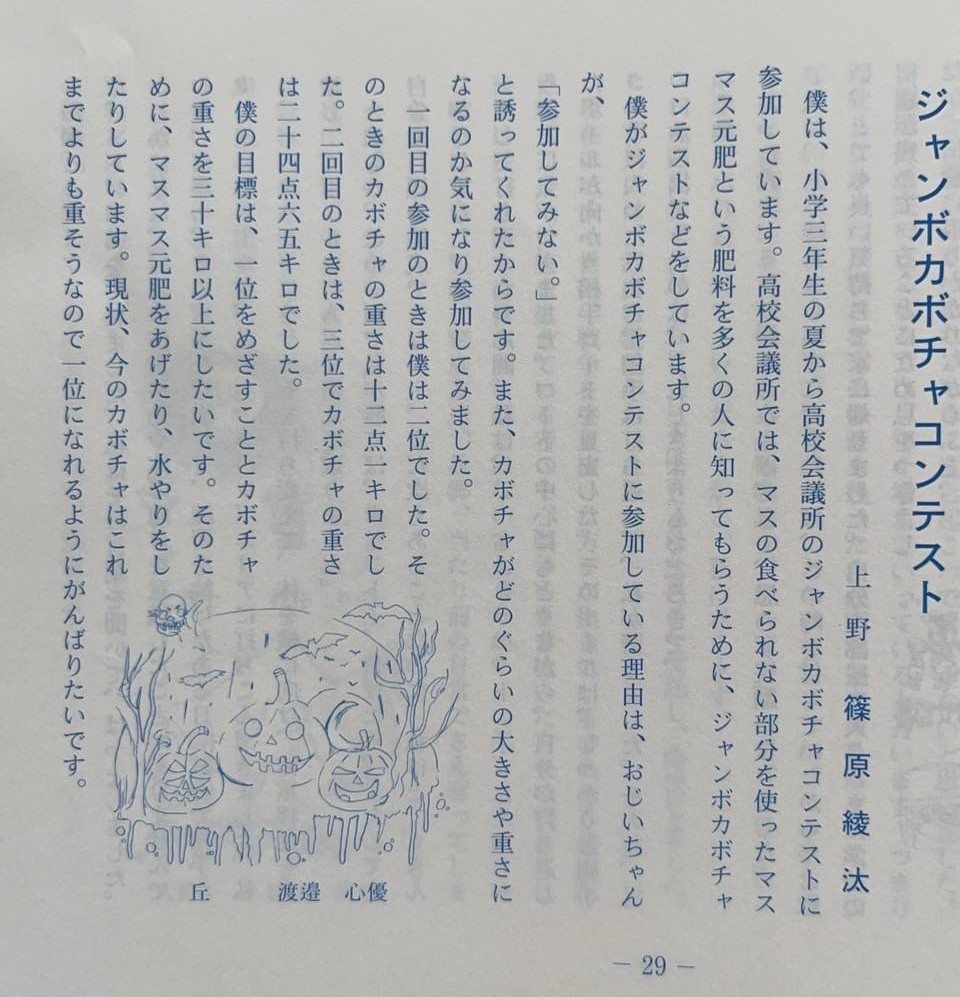 ジャンボカボチャコンテスト
上野　篠原綾汰
僕は、小学三年生の夏から高校会議所のジャンボカボチャコンテストに
参加しています。高校会議所では、マスの食べられない部分を使ったマス
マス元肥という肥料を多くの人に知ってもらうために、ジャンボカボチャ
コンテストなどをしています。
僕がジャンボカボチャコンテストに参加している理由は、おじいちゃん
が、
「参加してみない。」
と誘ってくれたからです。また、カボチャがどのぐらいの大きさや重さに
なるのか気になり参加してみました。
一回目の参加のときは僕は二位でした。そ
のときのカボチャの重さは十二点一キロでし
た。二回目のときは、三位でカボチャの重さ
は二十四点六五キロでした。
僕の目標は、一位をめざすこととカボチャ
の重さを三十キロ以上にしたいです。そのた
めに、マスマス元肥をあげたり、水やりをし
たりしています。現状、今のカボチャはこれ
までよりも重そうなので一位になれるようにがんばりたいです。
丘　渡邉　心優
― 29 ―